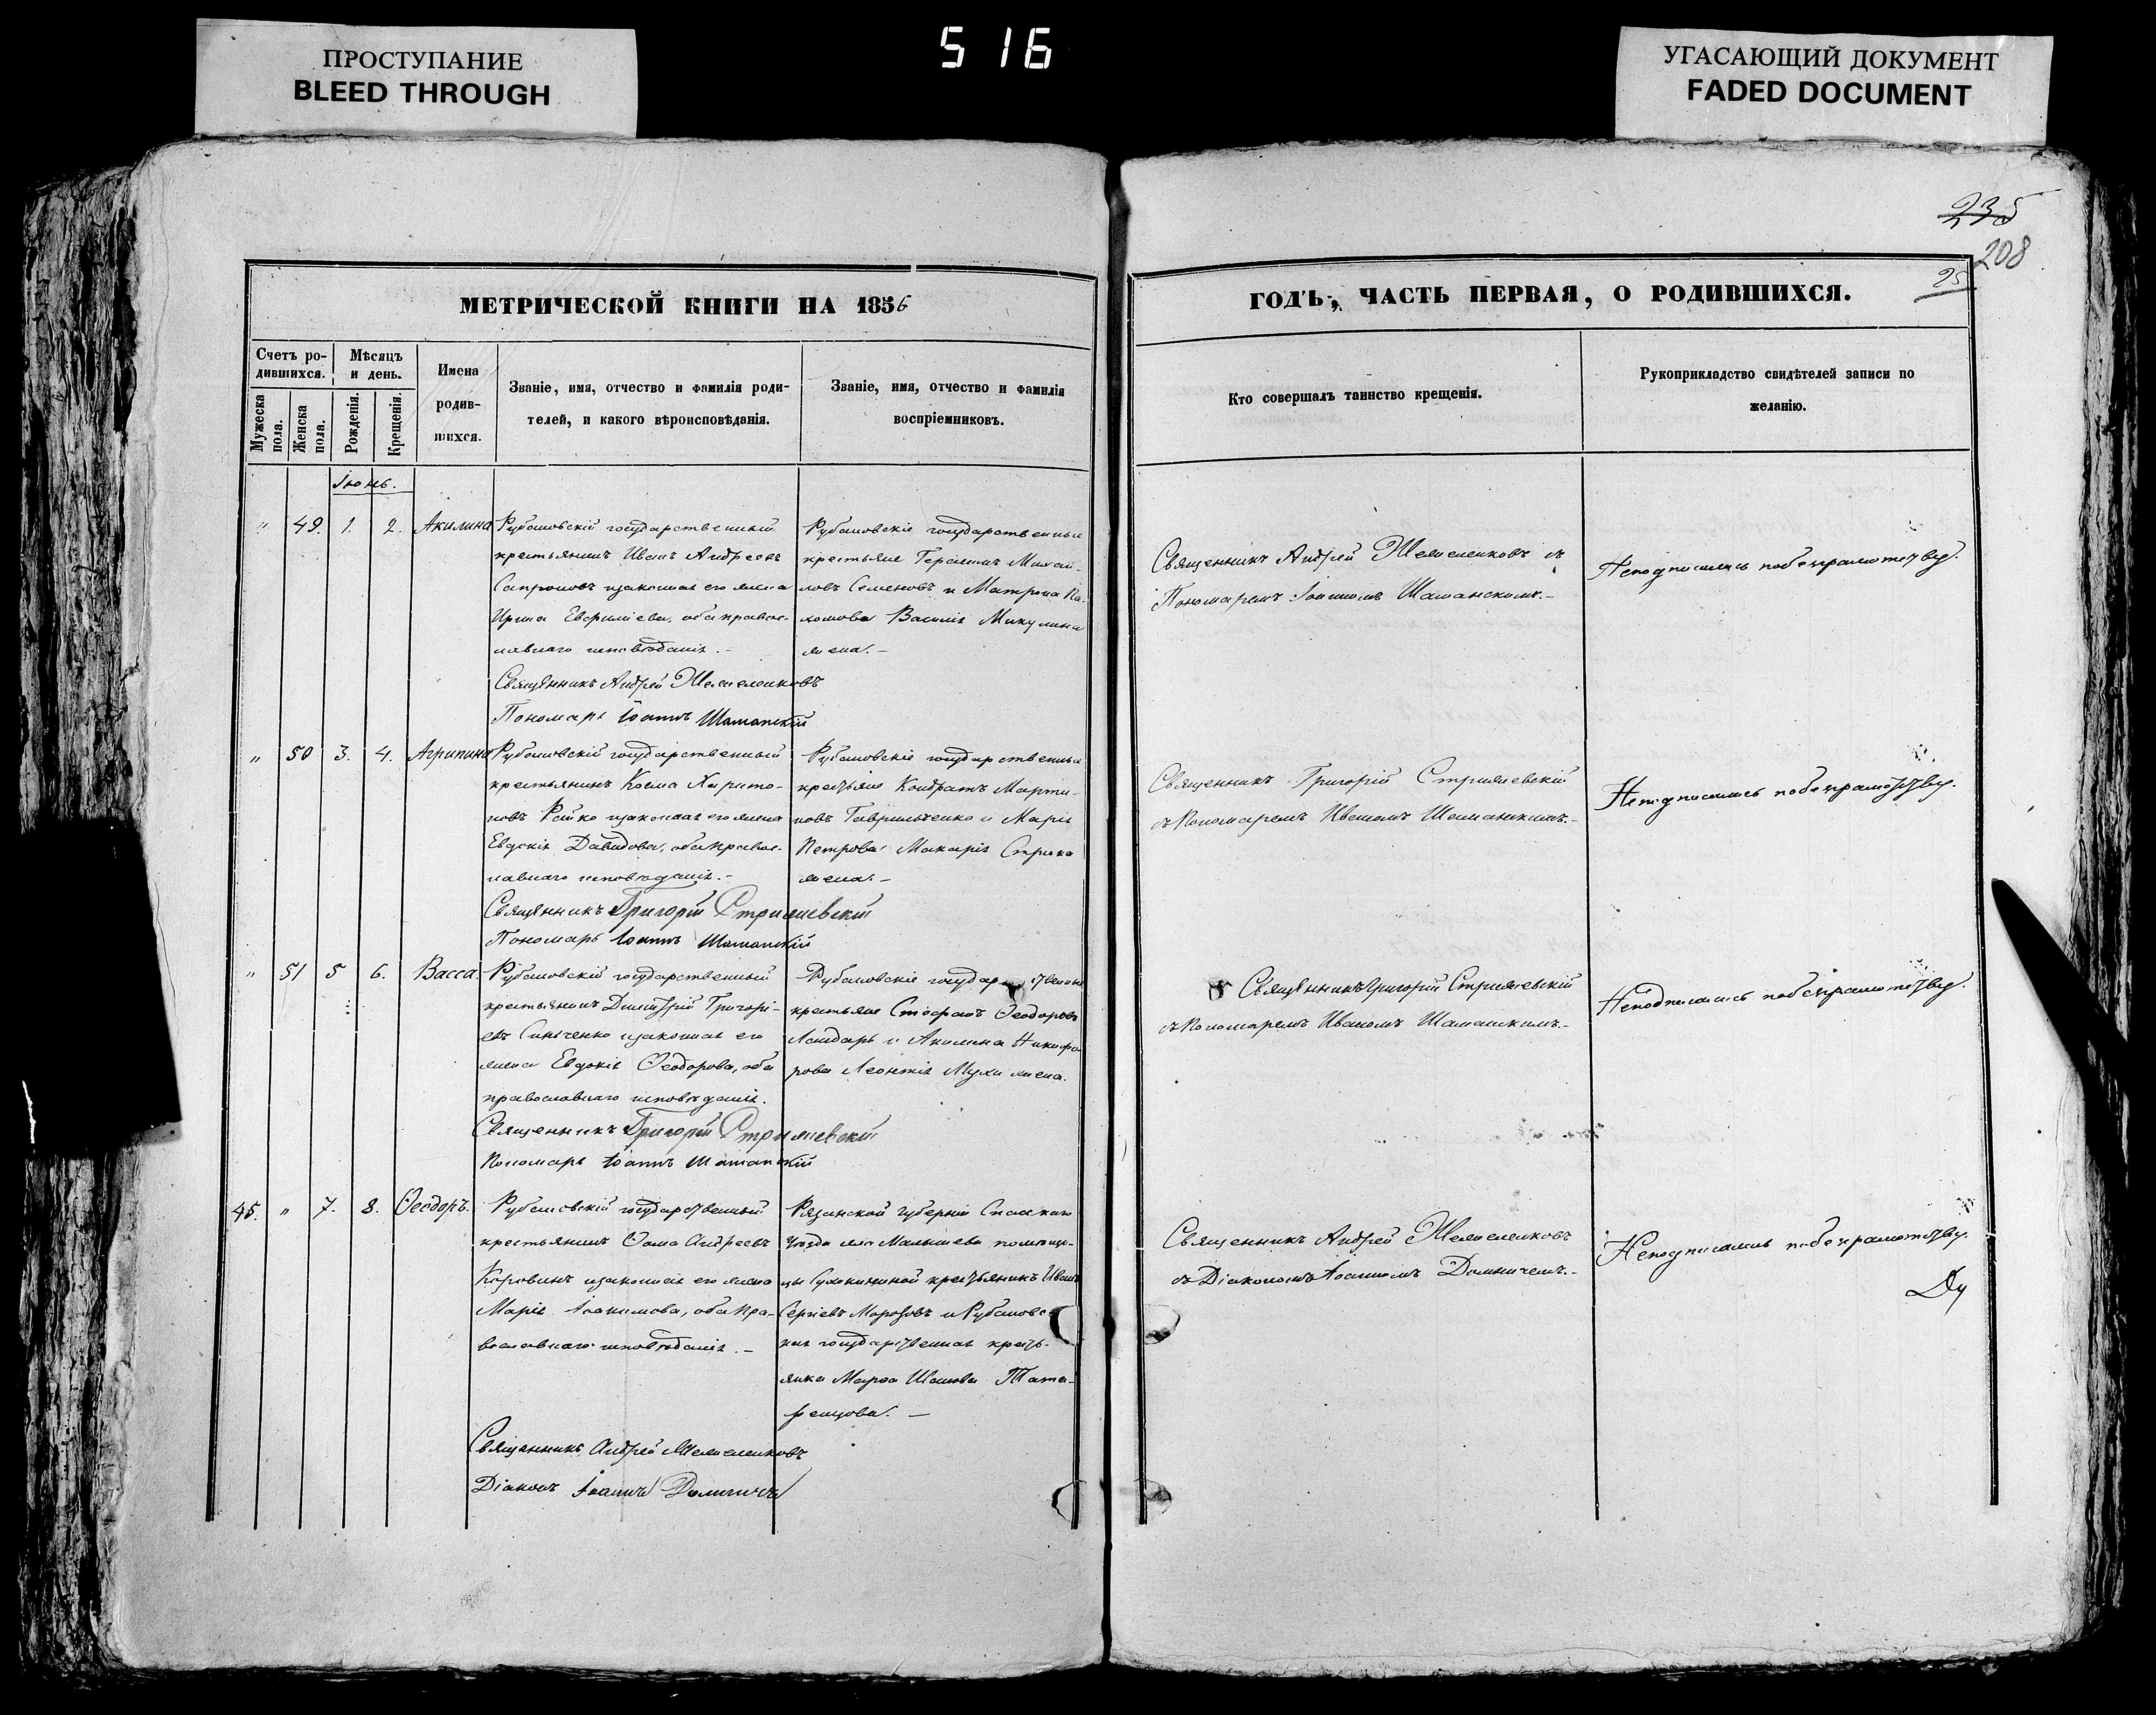 ПРОСТУПАНИЕ
BLEED THROUGH
516
УГАСАЮЩИЙ ДОКУМЕНТ
FADED DOCUMENT
235
208
25
МЕТРИЧЕСКОЙ КНИГИ НА 1856
Счетъ ро-
дившихся.
Мѣсяцъ
и день.
Имена
родив-
шихся.
Мужеска
пола.
Женска
пола.
Рожденія.
Крещенія.
Званіе, имя, отчество и фамилія роди-
телей, и какого вѣроисповѣданія.
Званіе, имя, отчество и фамилія
воспріемниковъ.
ГОДЪ, ЧАСТЬ ПЕРВАЯ, О РОДИВШИХСЯ.
Кто совершалъ таинство крещенія.
Рукоприкладство свидѣтелей записи по
желанію.
Іюнь.
" 49. 1. 2. Акилина
Рубановскій государственный
крестьянинъ Иванъ Андреевъ
Сапроновъ изаконная его жена
Ирина, оба правос-
лавнаго исповѣданія. -
Священникъ Андрей
Пономарь Іоаннъ Шаманскій
Рубановскіе государственные
крестьяне Герасимъ Михай-
ловъ Семеновъ и Матрона Па-
хомова Василія Микулина
жена. -
Священникъ Андрей съ
Пономаремъ Іоанномъ Шаманскимъ. -
Неподписались побезграмотству.
" 50 3. 4. Агрипина
Рубановскій государственный
крестьянинъ Косма Харито-
новъ Рейко изаконная его жена
Евдокія Давидова, оба правос-
лавнаго исповѣданія. -
Священникъ Григорій Стрижевскій
Пономарь Іоаннъ Шаманскій
Рубановскіе государственные
крестьяне Кондратъ Марти-
новъ Гавриленко и Марія
Петрова Макарія
жена. -
Священникъ Григорій Стрижевскій
съ Пономаремъ Иваномъ Шаманскимъ. -
Неподписались побезграмотству.
" 51 5 6. Васса.
Рубановскій государственный
крестьянинъ Димитрій Григорі-
евъ изаконная его
жена Евдокія Ѳеодорова, оба
православнаго исповѣданія.
Священникъ Григорій Стрижевскій
Пономарь Іоаннъ Шаманскій
Рубановскіе государственные
крестьяне Стефанъ Ѳеодоровъ
Лондарь и Акилина Никифо-
рова Леонтія Мухи жена.
Священникъ Григорій Стрижевскій
съ Пономаремъ Иваномъ Шаманскимъ. -
Неподписались побезграмотству.
45. " 7. 8. Ѳеодоръ.
Рубановскій государственный
крестьянинъ Ѳома Андреевъ
Коровинъ изаконная его жена
Марія Іоакимова, оба пра-
вославнаго исповѣданія. -
Священникъ Андрей
Діаконъ Іоаннъ
Рязанской губерніи Спаскаго
уѣзда села Малышева помѣщи-
цы крестьянинъ Иванъ
Сергіевъ Морозовъ и Рубановс-
кая государственная кресть-
янка Марѳа Тата-
ренцова. -
Священникъ Андрей
съ Діакономъ Іоанномъ
Неподписались побезграмотству.